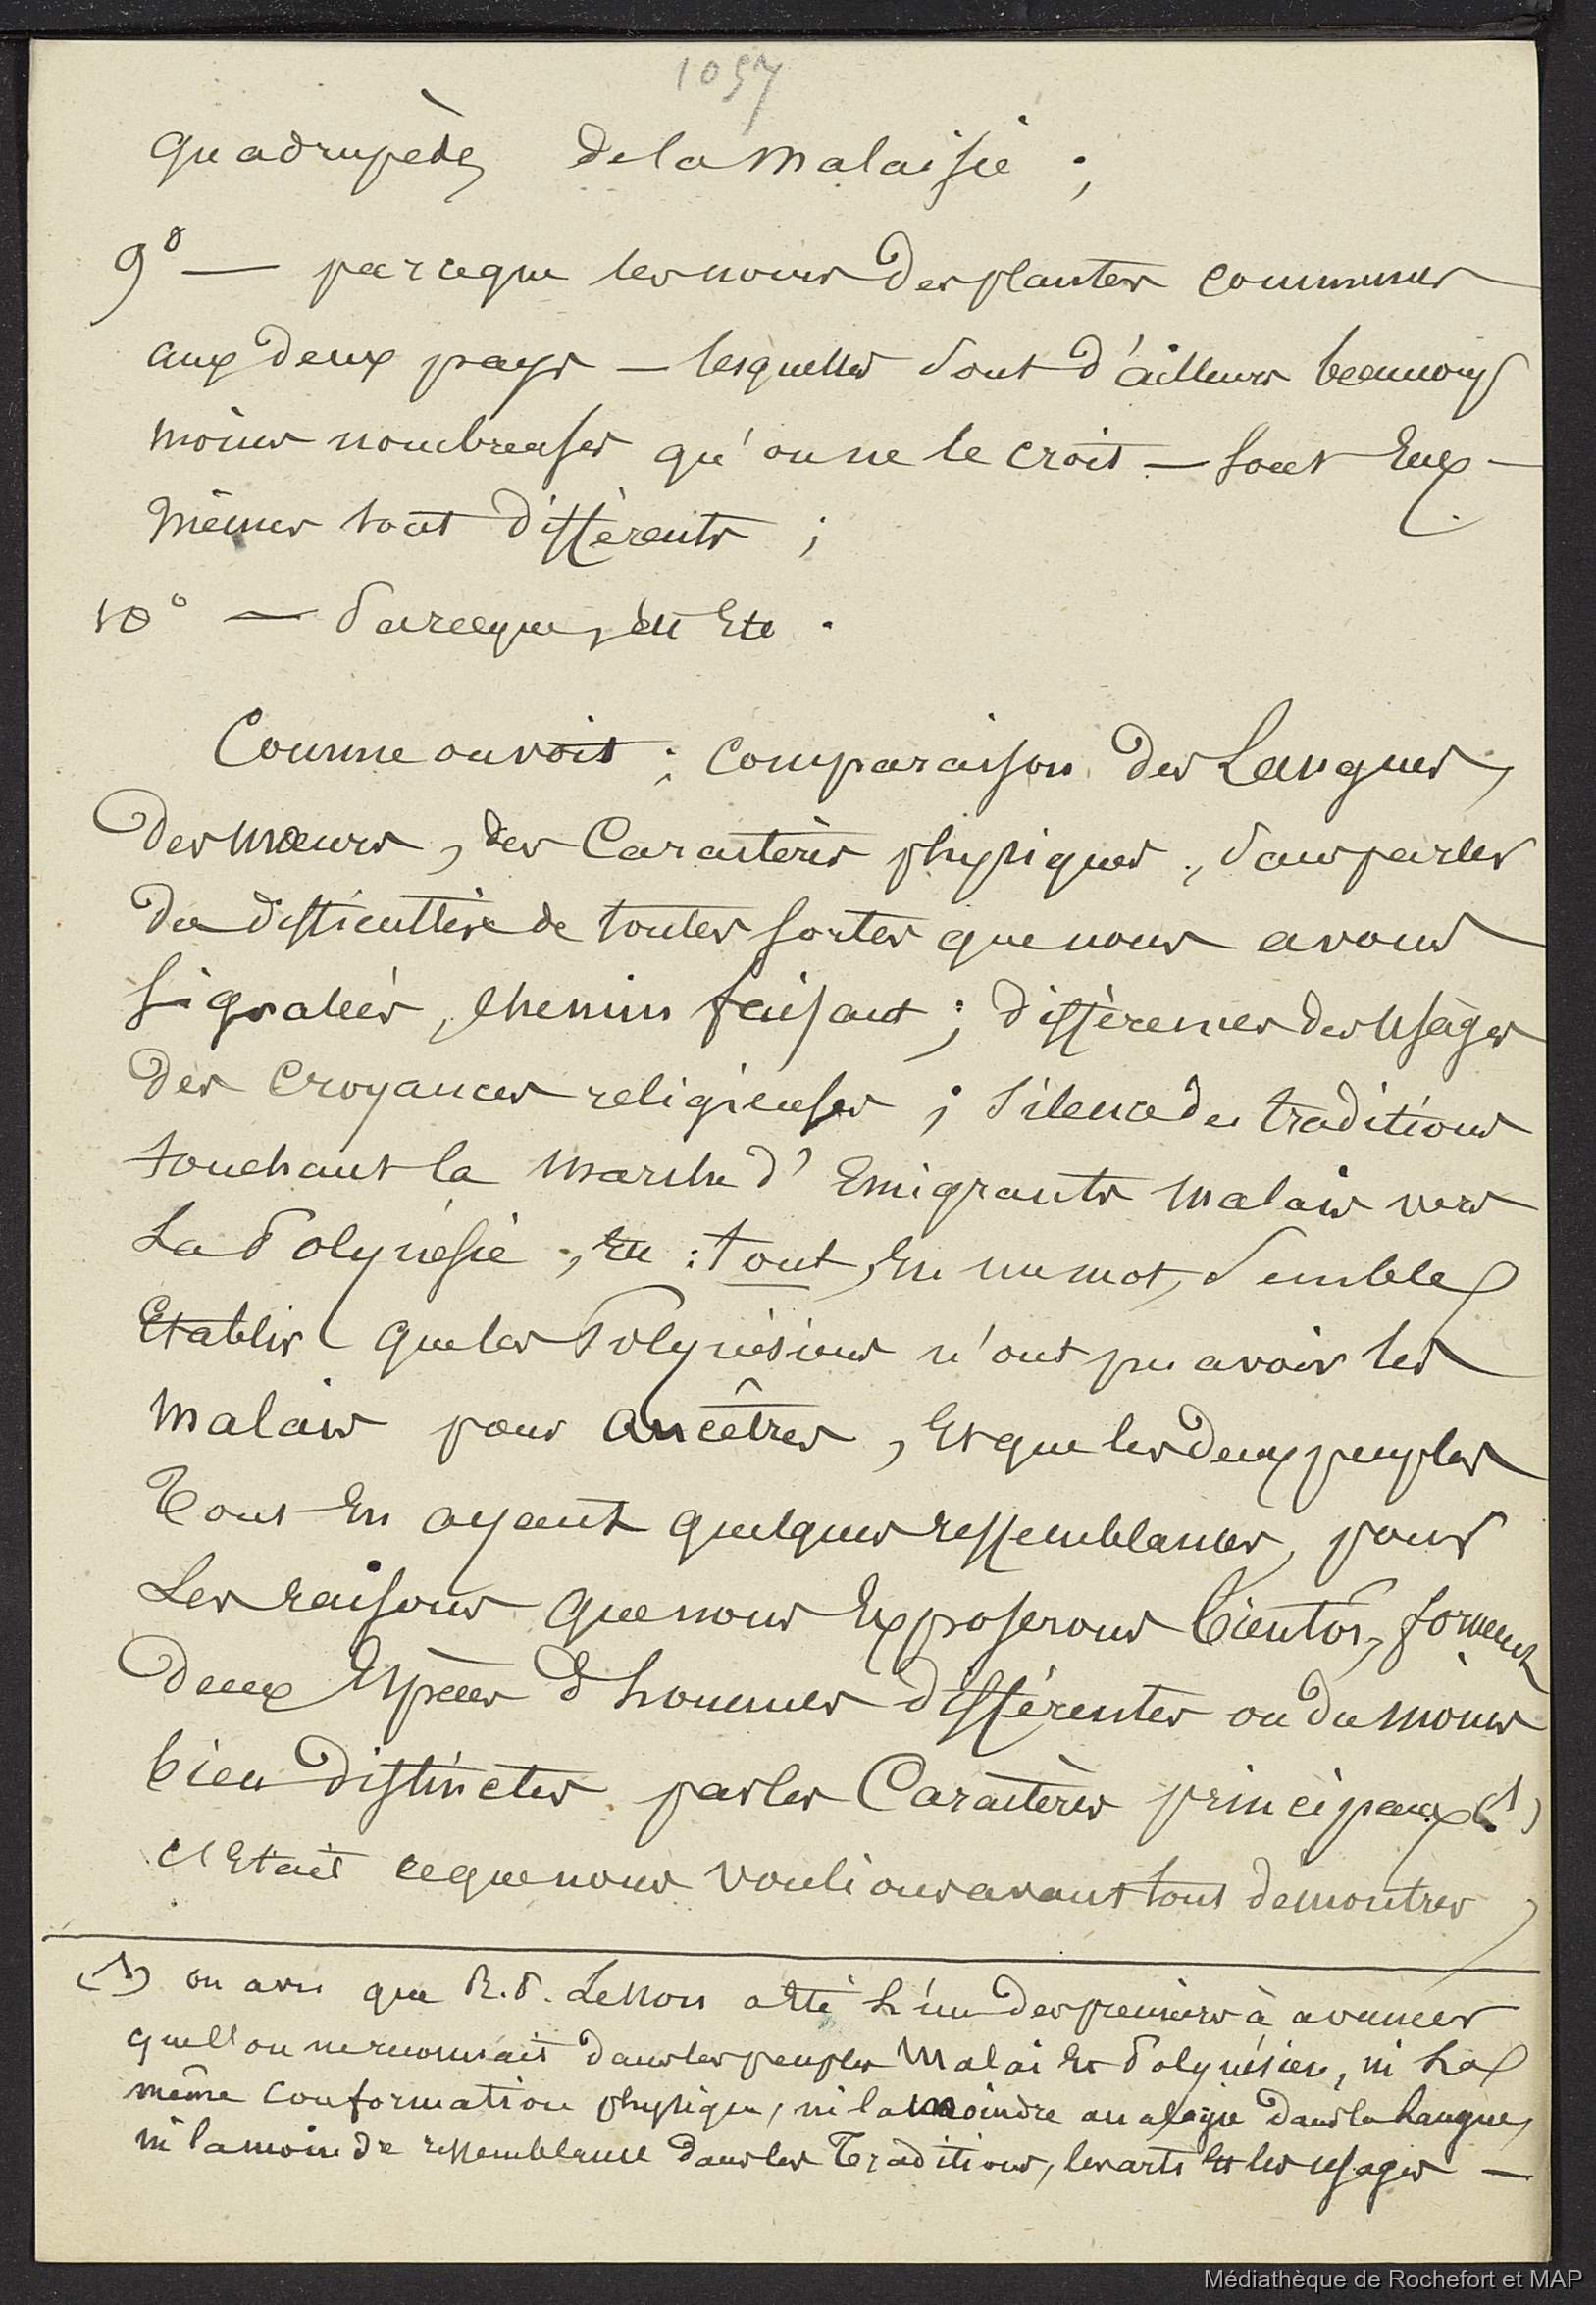 1057
quadrupèdes de la malaisie ;
9° — parceque les noms des plantes communes
aux deux pays — lesquelles sont d'ailleurs beaucoup
moins nombreuses qu'on ne le croit — sont Eux-
mêmes tout différents ;
10° — Parceque, Etc
Comme on voit ; comparaison des Langues,
des mœurs, des Caractères physiques, sans parler
des difficultés de toutes sortes que nous avons
signalées, chemin faisant ; différences des usages
des croyances religieuses ; silence des traditions
touchant la marche d'Emigrants malais vers
La Polynésie, : tout, En un mot, semble
Etablir que les Polynésiens n'ont pu avoir les
malais pour ancêtres, Et que les deux peuples
Tout En ayant quelques ressemblances, pour
Les raisons que nous Exposerons bientôt, forment
deux Espèces d'hommes différentes ou du moins
bien distinctes par les Caractères principaux (1)
C'Etait ce que nous voulions avant tout démontrer
(1) on a vu que R. P. Lesson a Eté L'un des premiers à avancer
que l'on ne reconnait dans les peuples Malai Et Polynésien, ni La
même conformation physique, ni la moindre analogie dans la Langue,
ni la moindre ressemblance dans les Traditions, les arts Et les usages —
Médiathèque de Rochefort et MAP